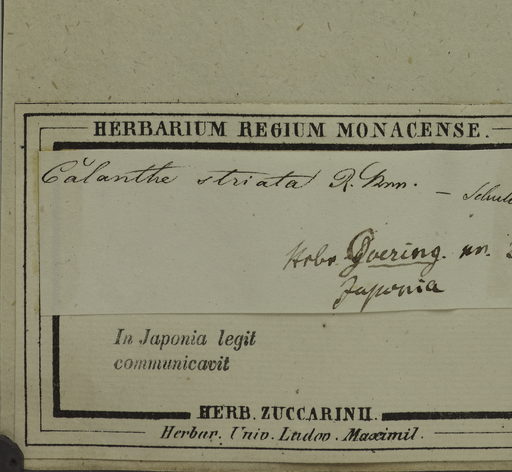 HERBARIUM REGIUM MONACENSE.
Calanthe striata R. Brn. –
Herbr. Goering. nr.
Japonia
In Japonia legit
communicavit
HERB. ZUCCARINII.
Herbar. Univ. Ludov. Maximil.